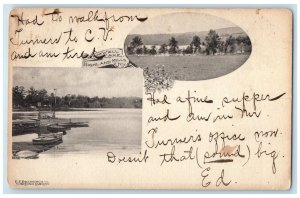 Had to walk from
Turners to C.V.
and am tired
Had a fine supper
and am in Mr.
Turner's office now.
Doesn't that (sound) big.
Ed.